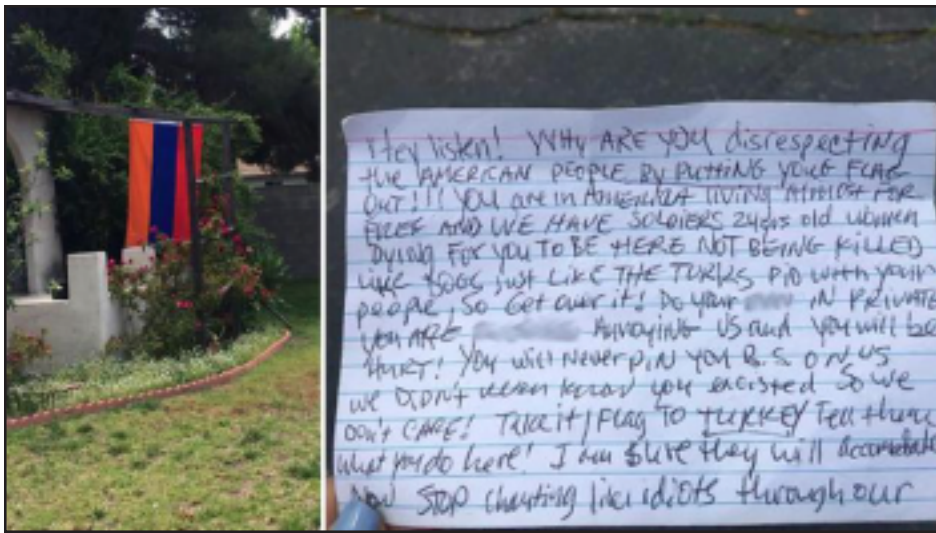 Hey listen! WHY ARE YOU disrespecting
the AMERICAN PEOPLE BY PUTTING YOUR FLAG
OUT!!! YOU are in AMERICA living Almost FOR
FREE AND WE HAVE SOLDIERS 24yrs old women
DYING FOR YOU TO BE HERE NOT BEING KILLED
LIKE DOGS just LIKE THE TURKS DID with your
people, So Get over it! Do your IN PRIVATE
you ARE Annoying US and you will be
HURT! You will Never pin you B.S. ON US
we Didn't even know you excisted So we
DON'T CARE! Take it/Flag TO TURKEY Tell them
what you do here! I am Sure they will
Now STOP Chanting like idiots through our